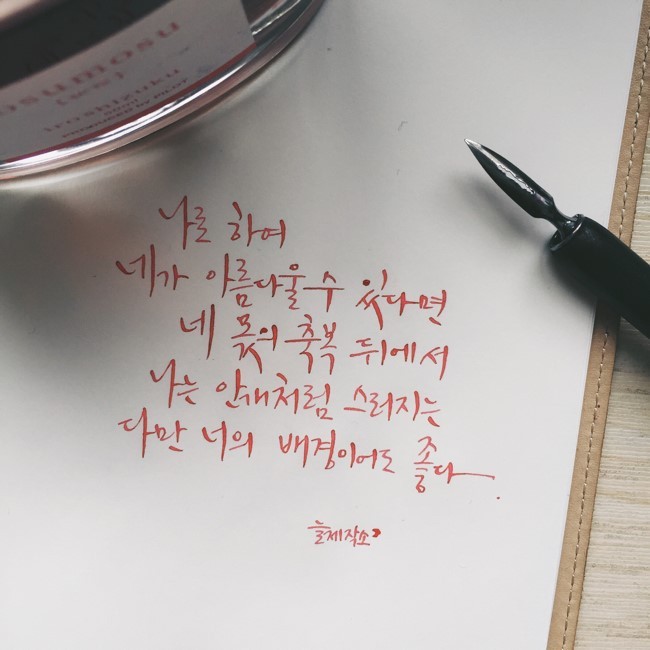 osumosu
iroshizuku
50ml
PRODUCED BY PILOT
나로 하여
네가 아름다울 수 있다면
네 몫의 축복 뒤에서
나는 안개처럼 스러지는
다만 너의 배경이어도 좋다.
늘제작소